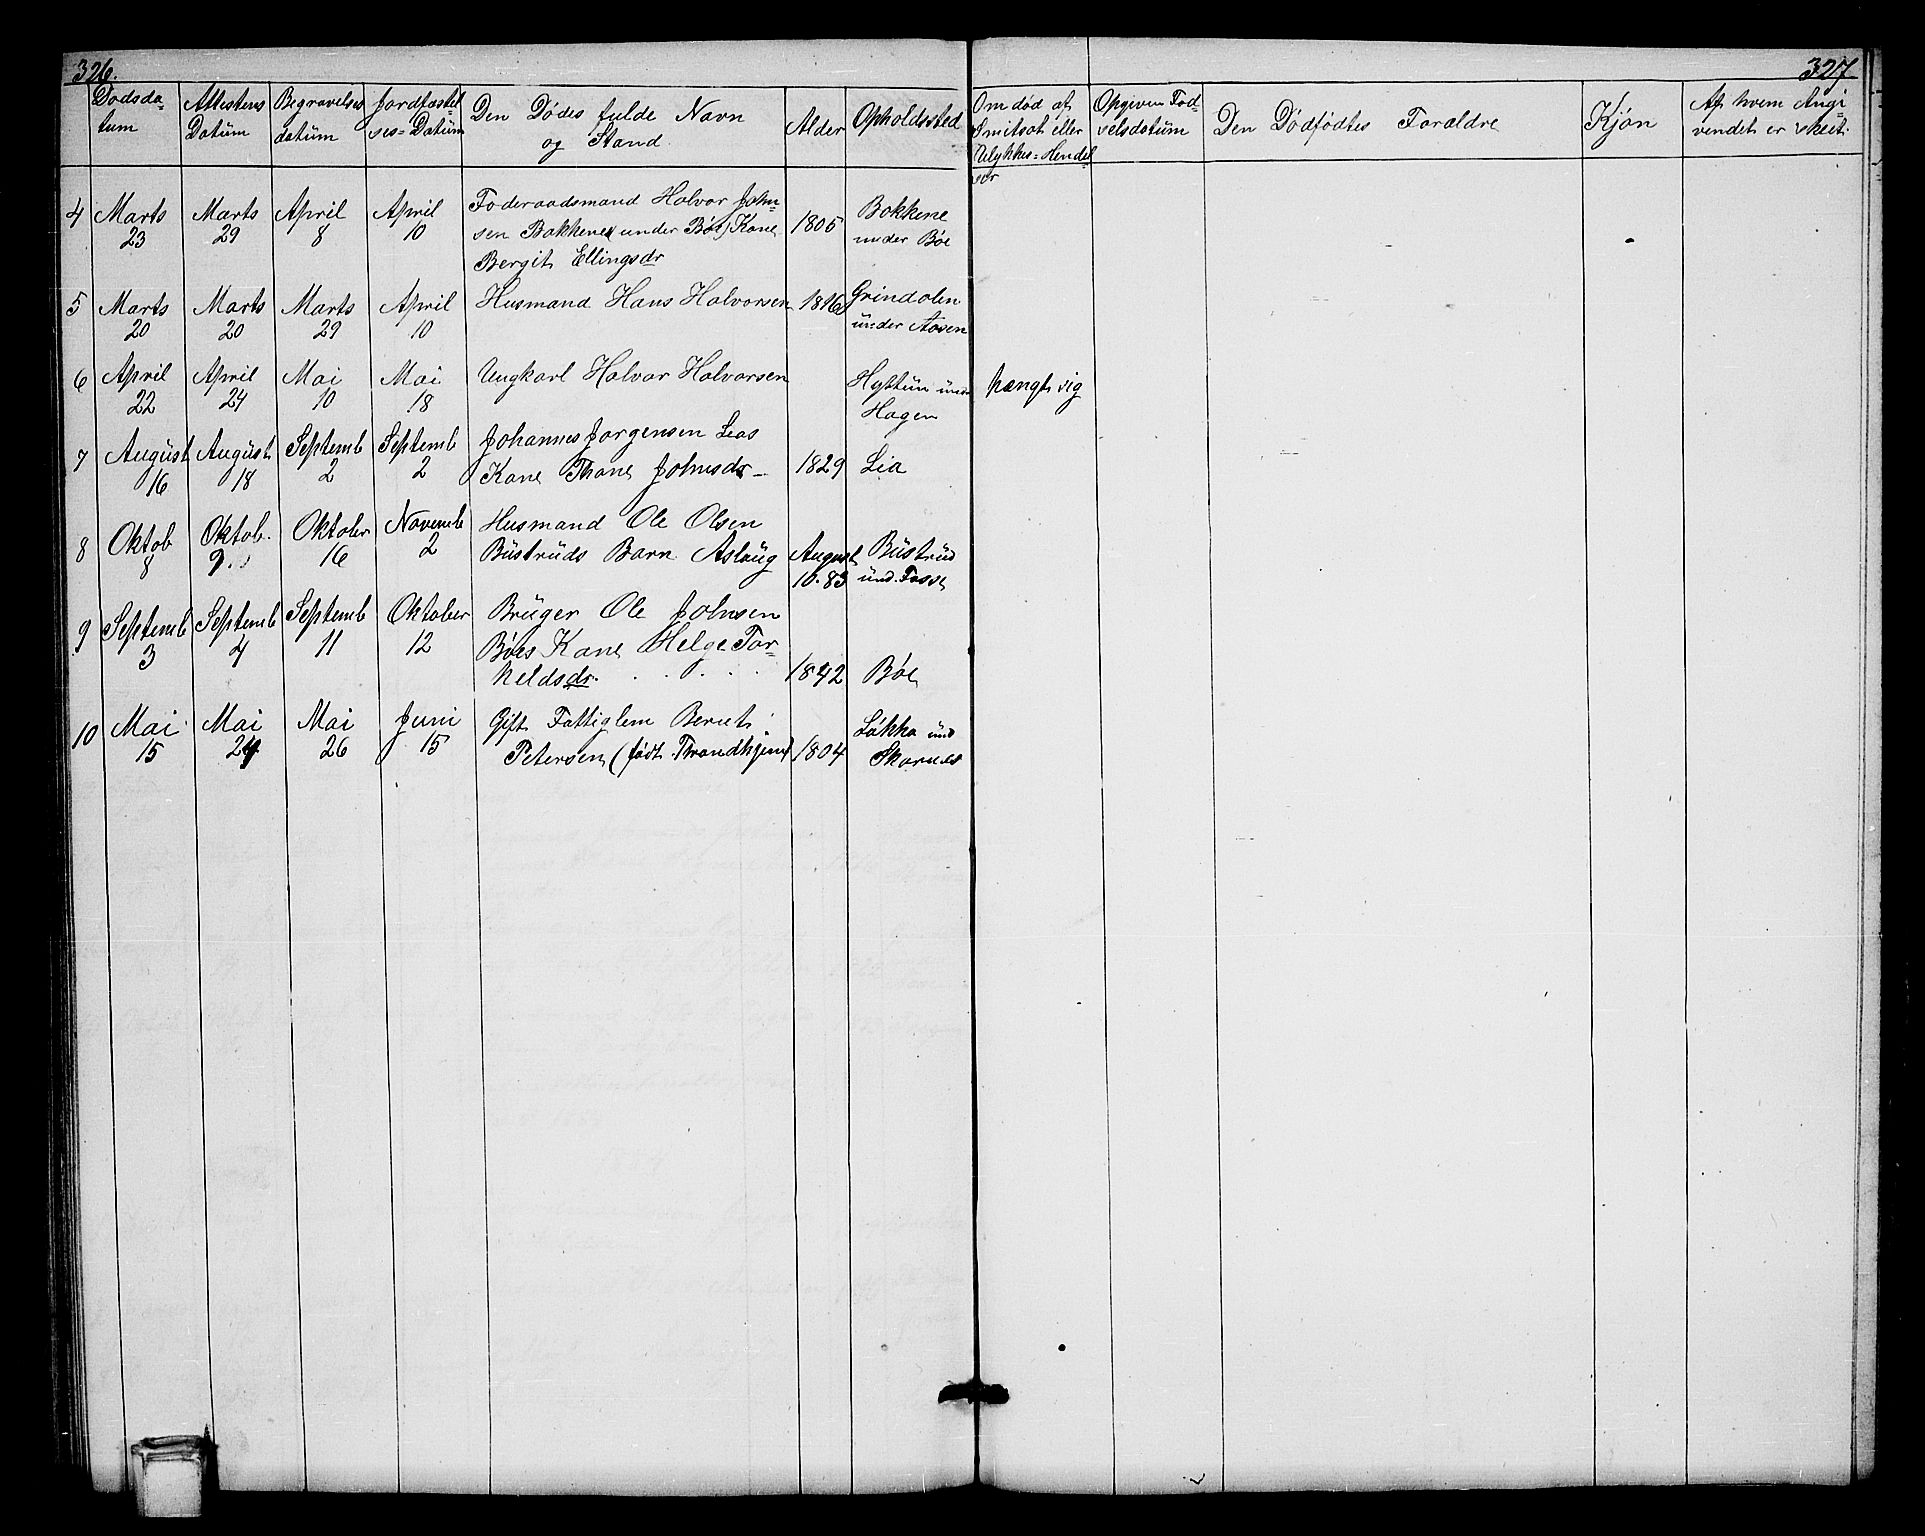 326.
327
Dødsda=
tum
Attestens
Datüm
Begravelses
datüm
Jordfæstel=
ses=Datüm
Den Dødes fulde Navn
og Stand.
Alder
Opholdssted
Om død af
Smitsot eller
Ulykkes=Hendel
ser
Opgiven Fød=
selsdatüm
Den Dødfødtes Forældre
Kjøn
Af hvem Angi=
vendet er skeet.
4 Marts 23 Marts 29 April 8 April 10 Foderaadsmand Halvor John=
sen Bakkene (under Bøe) Kone
Bergit Ellingsdr 1805 Bakkene
under Bøe
5 Marts 20 Marts 20 Marts 29 April 10 Husmand Hans Halvorsen 1816 Grindolen
ünder Aasen
6 April 22 April 24 Mai 10 Mai 18 Ungkarl Halvor Halvorsen
Hagen hængt sig
7 Augüst 16 Augüst 18 Septemb 2 Septemb 2 Johannes Jørgensen Leas
Kone Thone Johnsdr— 1829 Lia
8 Oktob 8 Oktob. 9. Oktober 16 Novemb 2 Husmand Ole Olsen
Büstrüds Barn Aslaüg August
10.83 Büstrüd
ünd. Fosse
9 Septemb 3 Septemb 4 Septemb 11 Oktober 12 Brüger Ole Johnsen
Bøes Kone Helge Tor=
keldsdr. 1842 Bøe
10 Mai 15 Mai 24 Mai 26 Juni 15 Gift Fattiglem Berut
Petersen (født Throndhjem) 1804 Løkka ünd
Skornes